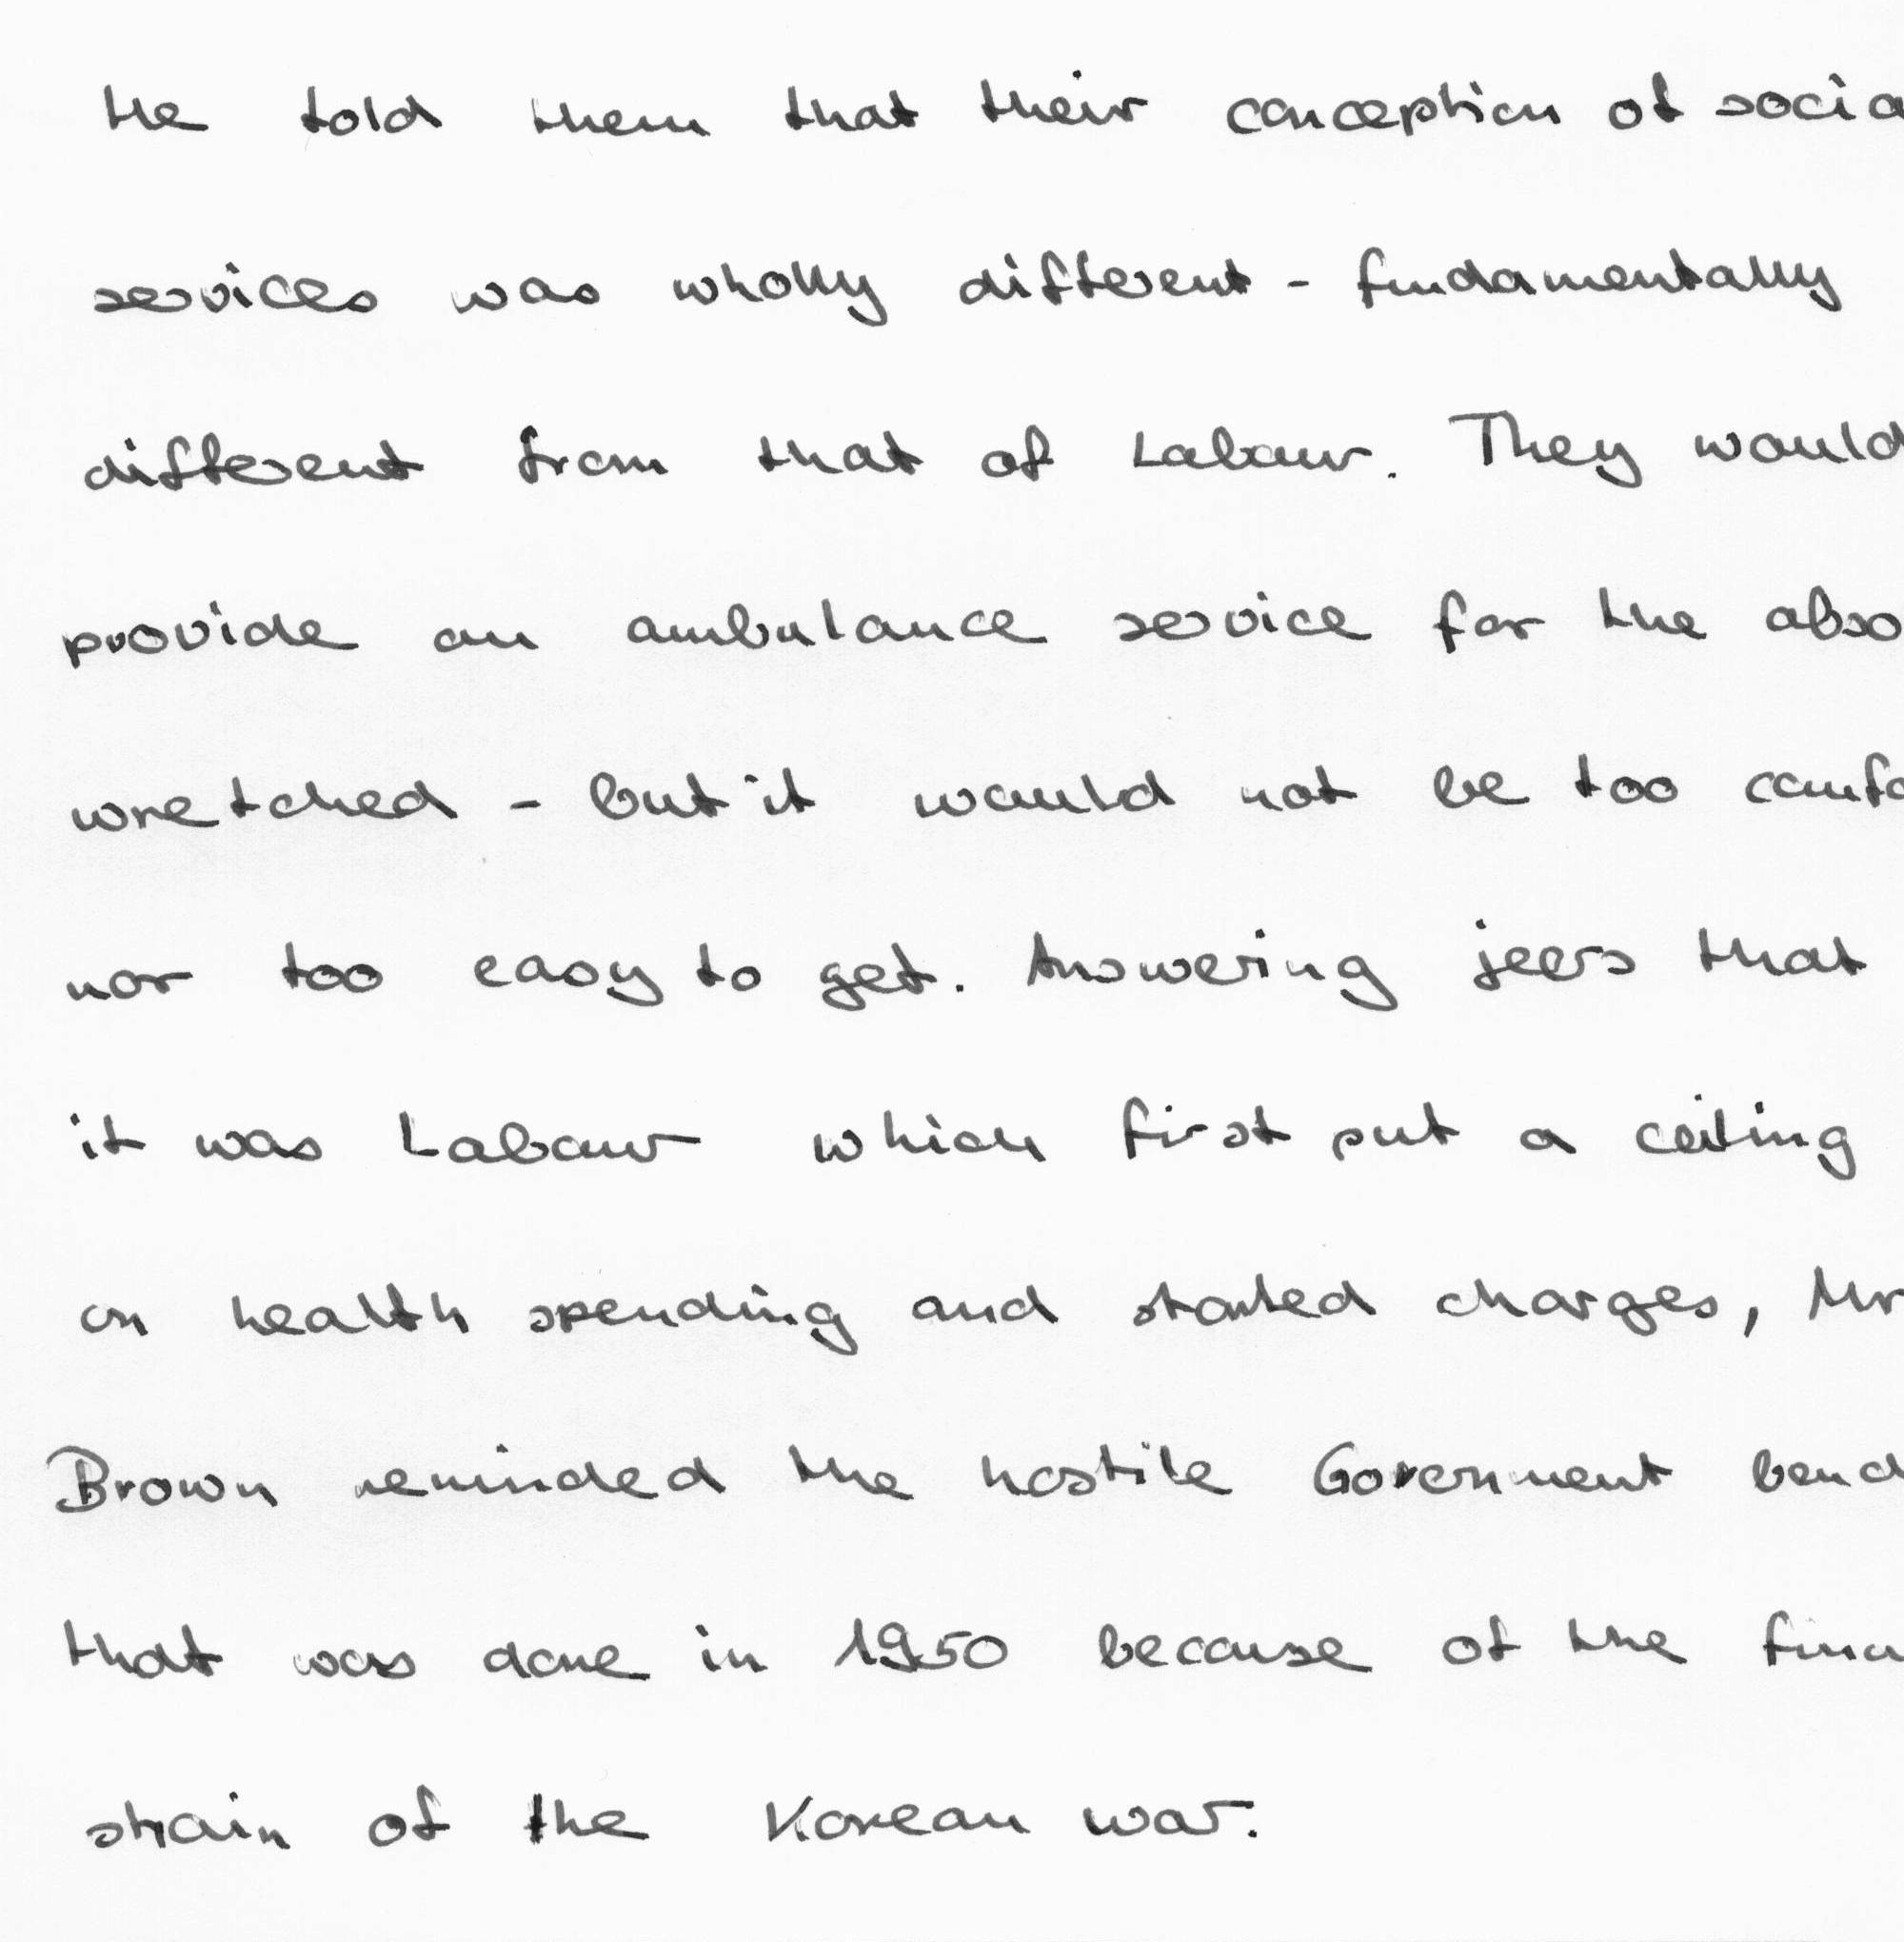 He told them that their conception of socia
services was wholly different - fundamentally
different from that of Labour. They would
provide an ambulance service for the abso
wretched - but it would not be too comfo
nor too easy to get. Answering jeers that
it was Labour which first put a ceiling
on health spending and started charges, Mr
Brown reminded the hostile Government benc
that was done in 1950 because of the fina
strain of the Korean war.